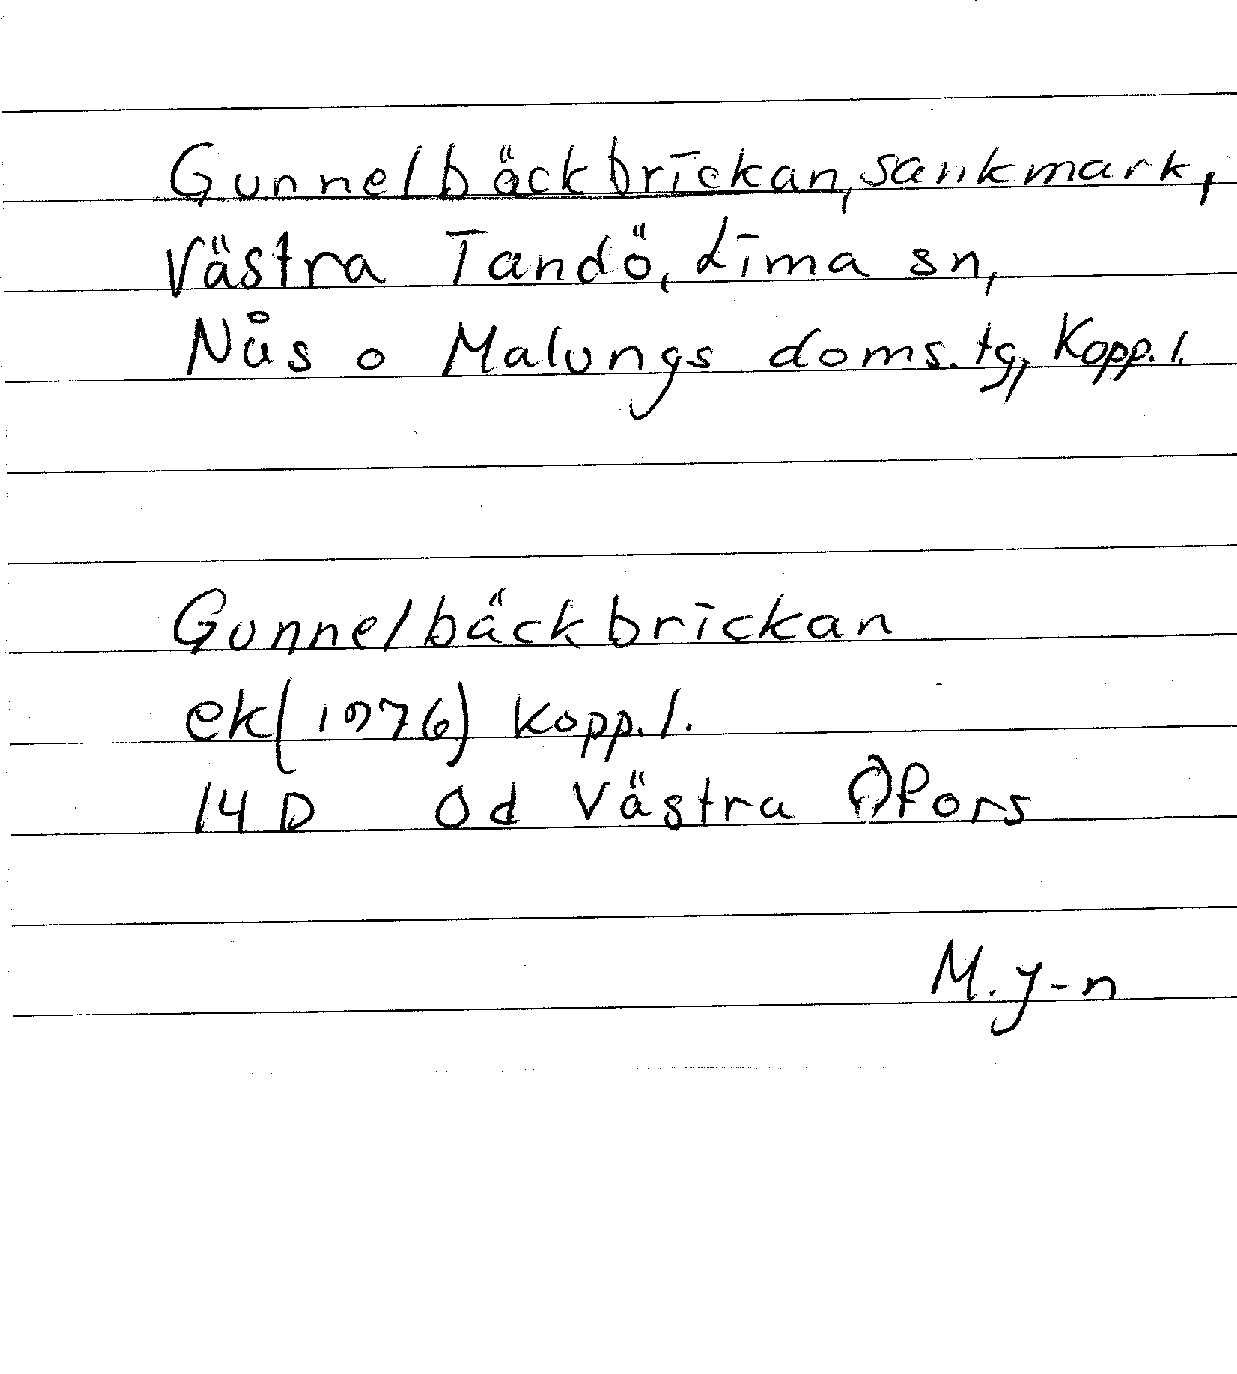 Gunnelbäckbrickan, sankmark,
Västra Tandö, Lima sn,
Nås o Malungs doms. tg, Kopp. l.
Gunnelbäckbrickan
ek (1976) Kopp. l.
14 D 0d Västra Ofors
M. J-n